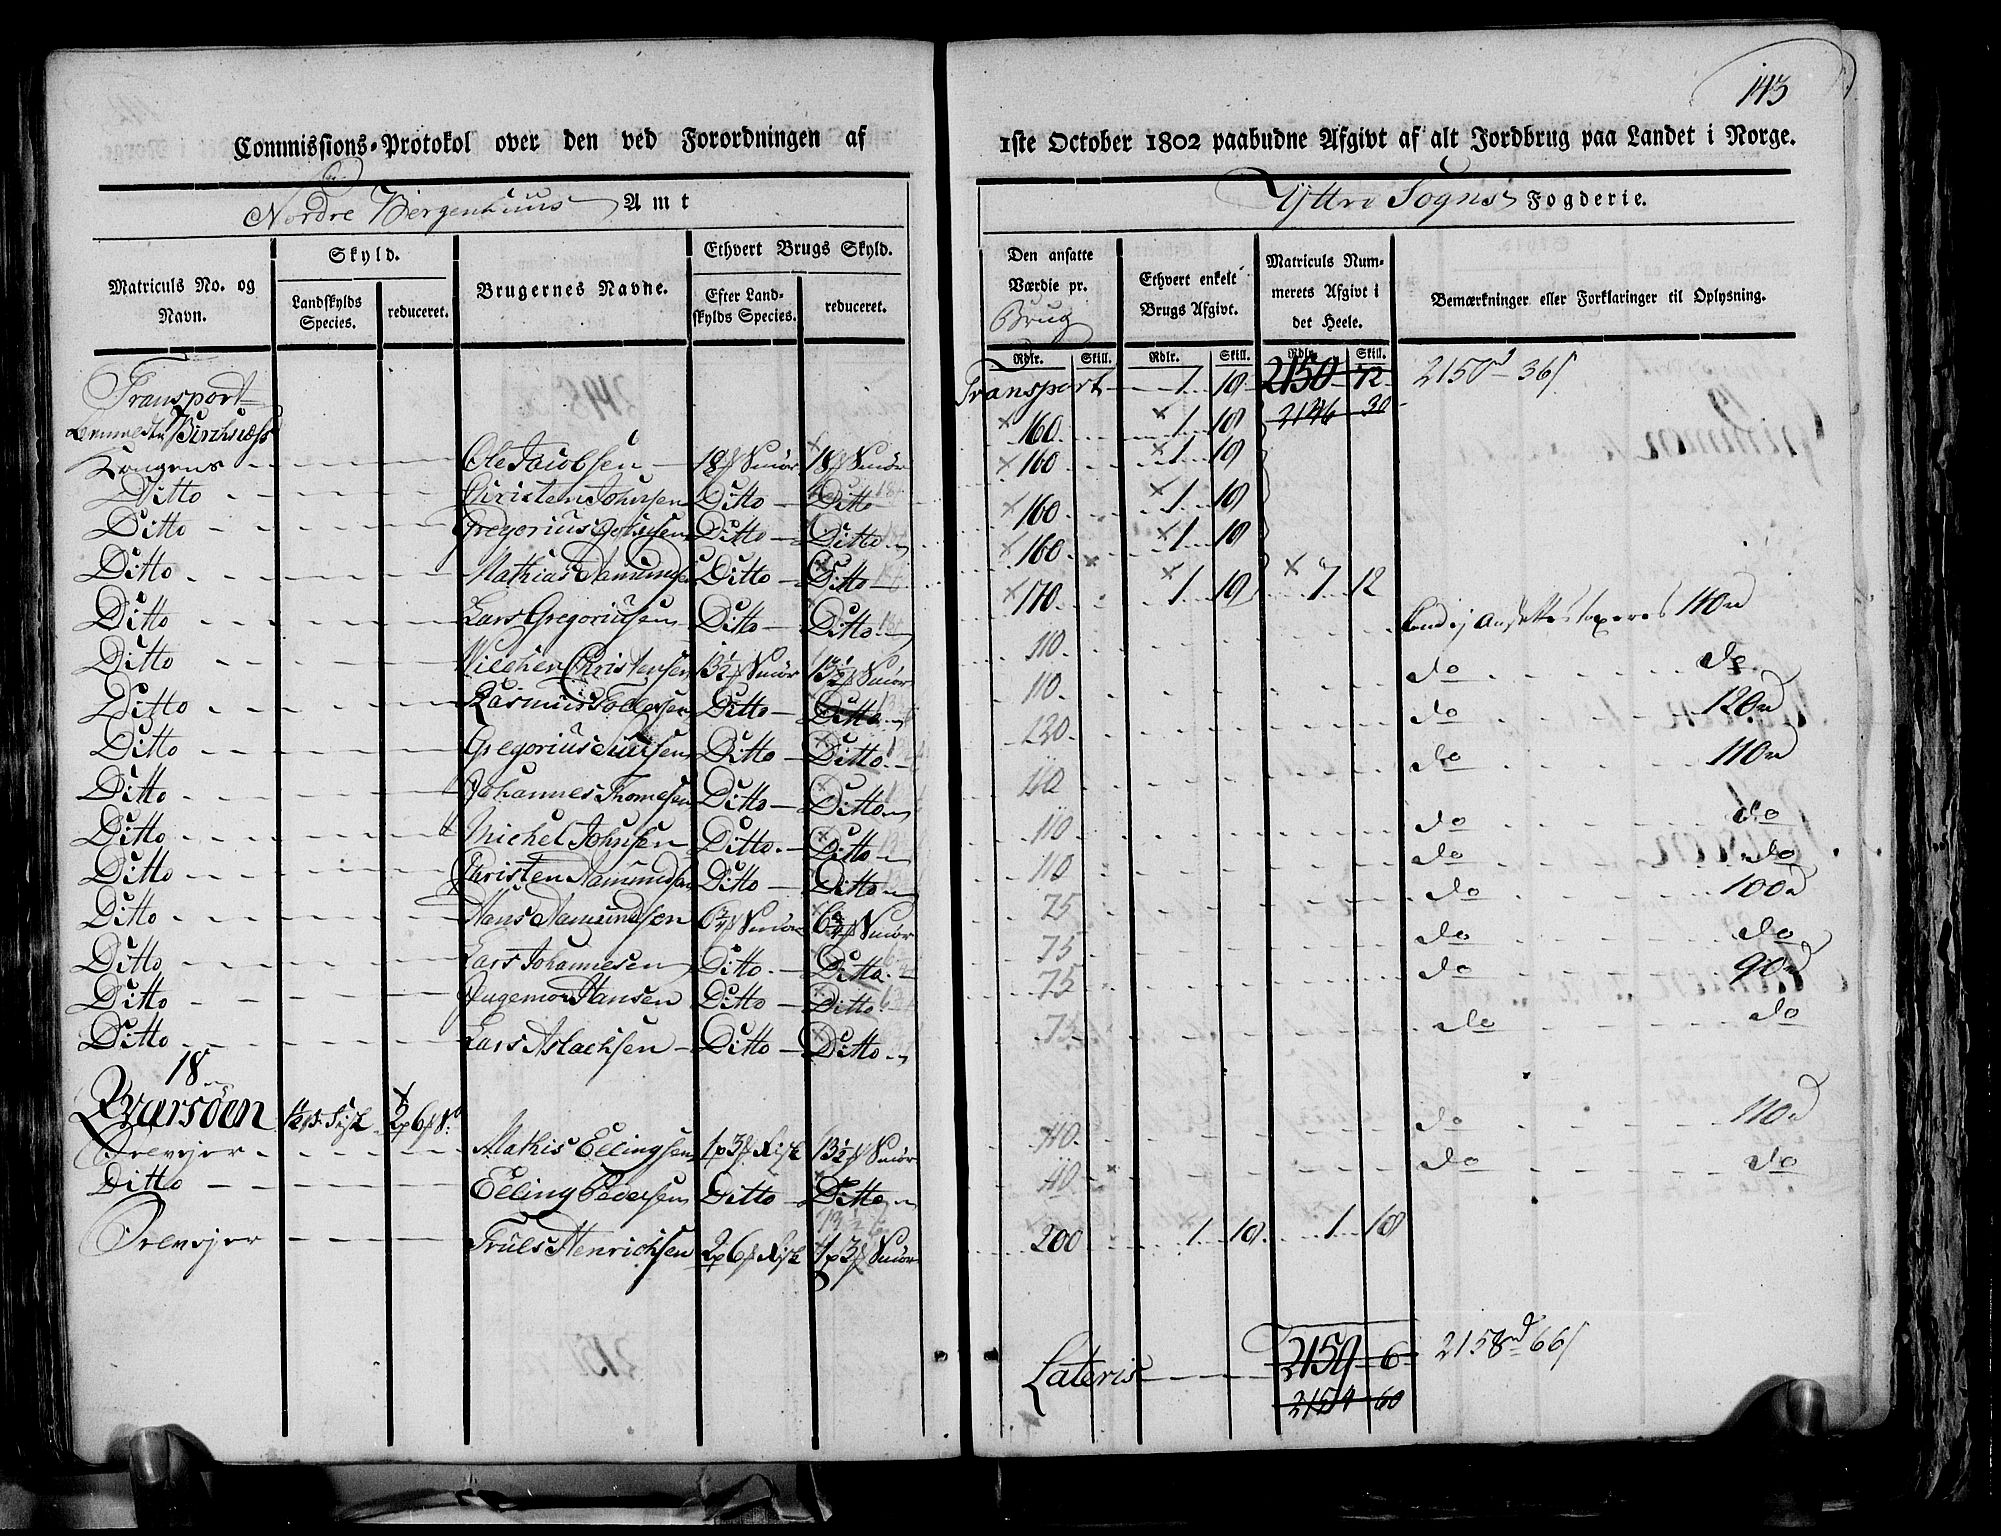 143
Commissions-Protokol over den ved Forordningen af 1ste October 1802 paabudne Afgivt af alt Jordbrug paa Landet i Norge.
Nordre Bergenhuus Amt
Yttre Sogns Fogderie.
Matriculs No. og Navn.
Skyld.
Landskylds Species.
reduceret.
Brugernes Navne.
Ethvert Brugs Skyld.
Efter Landskylds Species.
reduceret.
Den ansatte Værdie pr. Brug
Ethvert enkelt Brugs Afgivt.
Matriculs Nummerets Afgivt i det Heele.
Bemærkninger eller Forklaringer til Oplysning.
Rdlr. Skill. Rdlr. Skill. Rdlr. Skill.
Transport
Transport 1 18 2150 72 2150 36
160 1 18 2146 30
Kongens Ole Jacobsen 18 Smör 18 Smör 160 1 18
Ditto Christen Johnsen Ditto Ditto 160 1 18
Ditto Gregorius Ditto Ditto 160 1 18
Ditto Mathias Amundsen Ditto Ditto 170 1 18 7 12
Ditto Lars Gregoriusen Ditto Ditto 110 110
Ditto Christensen 13½ Smör 13½ Smör 110 do do
Ditto Rasmus Pedersen Ditto Ditto 120 do 120
Ditto Gregorius Ditto Ditto 110 do 110
Ditto Johannes Thomesen Ditto Ditto 110 do do
Ditto Michel Johnsen Ditto Ditto 110 do do
Ditto Christen Amundsen Ditto Ditto 75 do 100
Ditto Hans Amundsen 6¾ Smör 6¾ Smör 75 do do
Ditto Lars Johannesen Ditto Ditto 75 do 90
Ditto Ingemor Hansen Ditto Ditto 75 do do
Ditto Lars Aslachsen Ditto Ditto
18
Qvarsöen 2 6
Mathis Ellingsen 1 3 Fisk 13½ Smör 40 do 110
Ditto Elling Pedersen Ditto Ditto 40 do do
Truls Henrichsen 2 6 Fisk 1 3 Smör 200 1 18 1 18
Lateris 2159 6 2158 66
2154 60